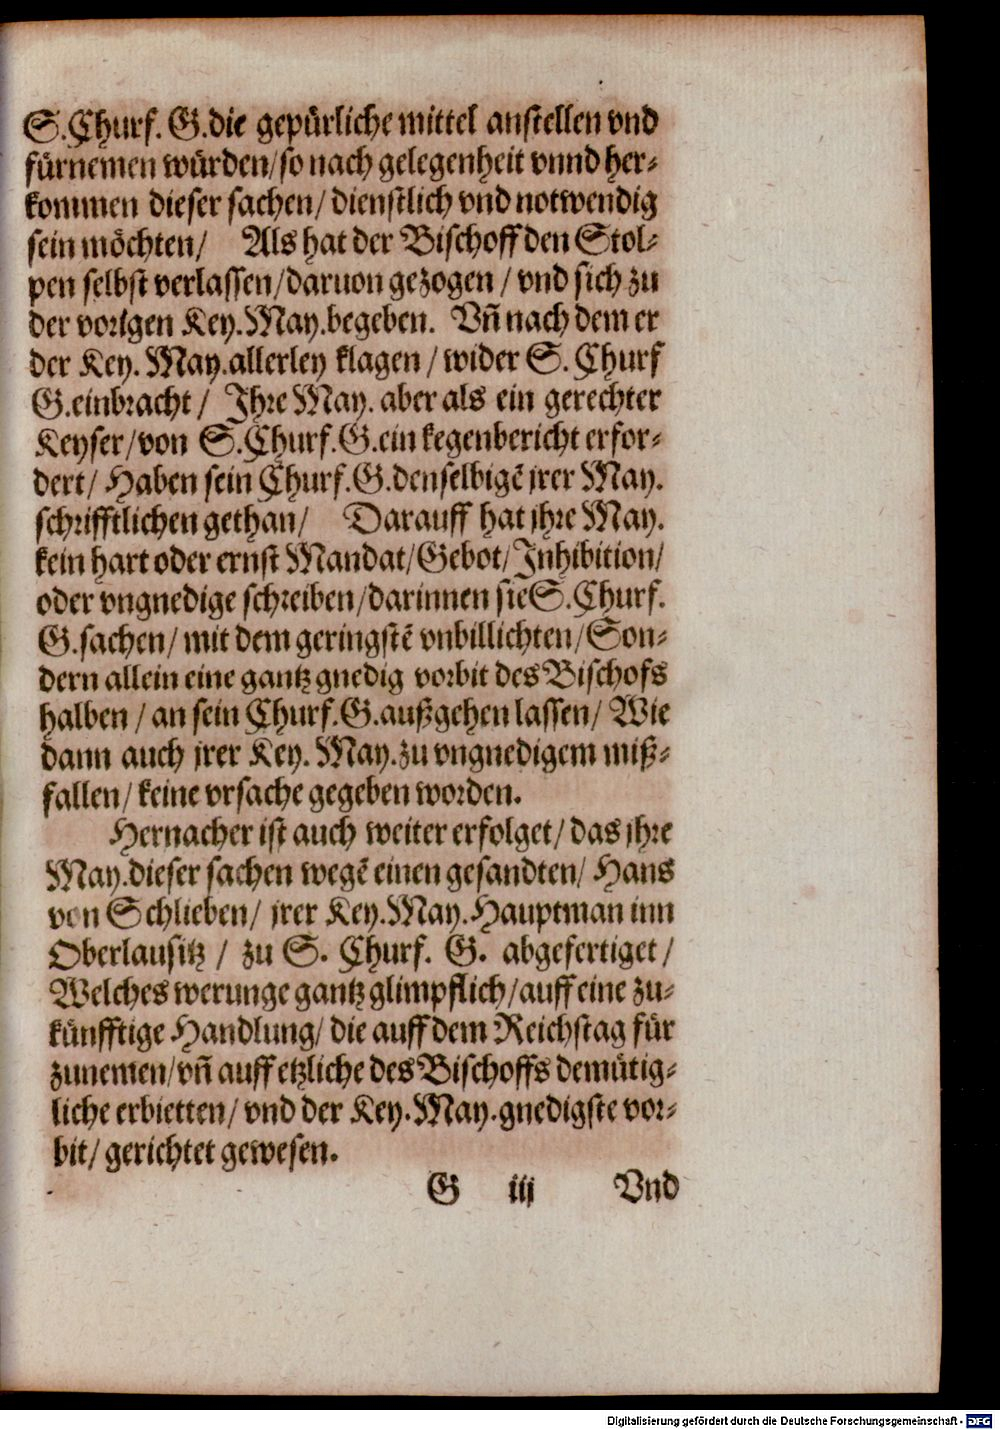 S. Churf. G. die gepürliche mittel anstellen vnd
fürnemen würden/ so nach gelegenheit vnnd her-
kommen dieser sachen/ dienstlich vnd notwendig
sein möchten/ Als hat der Bischoff den Stol-
pen selbst verlassen/ daruon gezogen/ vnd sich zu
der vorigen Key. May. begeben. Vñ nach dem er
der Key. May. allerley klagen/ wider S. Churf
G. einbracht/ Ihre May. aber als ein gerechter
Keyser/ von S. Churf. G. ein kegenbericht erfor-
dert/ Haben sein Churf. G. denselbigẽ jrer May.
schrifftlichen gethan/ Darauff hat jhre May.
kein hart oder ernst Mandat/ Gebot/ Inhibition/
oder vngnedige schreiben/ darinnen sie S. Churf.
G. sachen/ mit dem geringstẽ vnbillichten/ Son-
dern allein eine gantz gnedig vorbit des Bischofs
halben/ an sein Churf. G. außgehen lassen/ Wie
dann auch jrer Key. May. zu vngnedigem miß-
fallen/ keine vrsache gegeben worden.
Hernacher ist auch weiter erfolget/ das jhre
May. dieser sachen wegẽ einen gesandten/ Hans
von Schlieben/ jrer Key. May. Hauptman inn
Oberlausitz/ zu S. Churf. G. abgefertiget/
Welches werunge gantz glimpflich/ auff eine zu-
künfftige Handlung/ die auff dem Reichstag für
zunemen/ vñ auff etzliche des Bischoffs demütig-
liche erbietten/ vnd der Key. May. gnedigste vor-
bit/ gerichtet gewesen.
G iij Vnd
Digitalisierung gefördert durch die Deutsche Forschungsgemeinschaft - DFG